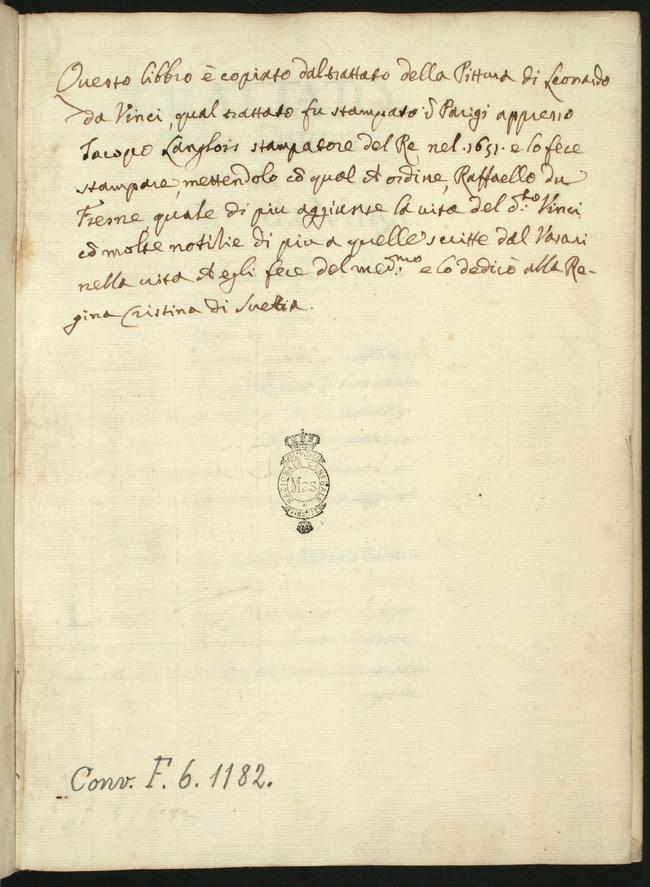 Questo libbro è copiato dal trattato della Pittura di Leonardo
da Vinci, qual trattato fu stampato à Parigi appresso
Jacopo Langlois stampatore del Re nel .1651. e lo fece
stampare, mettendolo cõ qual ordine, Raffaello du
Fresne quale di piu aggiunse la vita del d.to Vinci
cõ molte notitie di piu a quelle scritte dal Vasari
nella vita egli fece del med.mo e lo dedicò alla Re-
gina Cristina di Svetia.
Mss
Conv. F. 6. 1182.